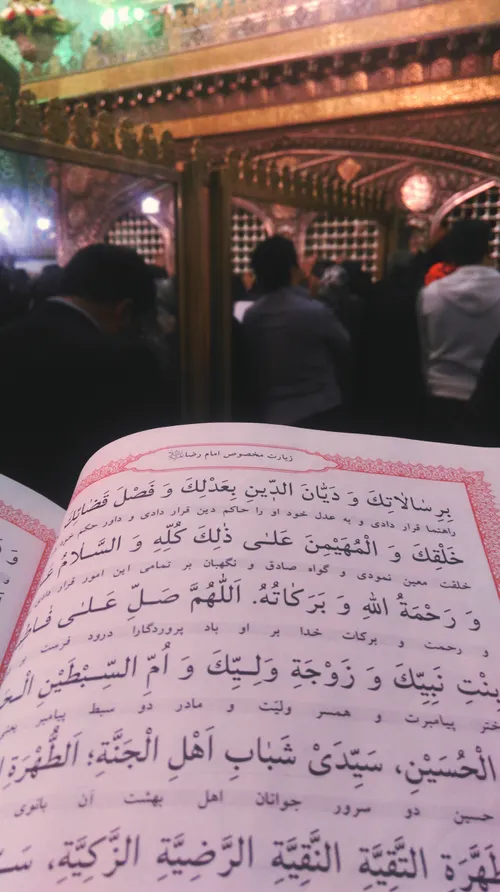 زیارت مخصوص امام رضا
بِرِسٰالٰاتِكَ وَ دَيّٰانَ الدّٖينِ بِعَدْلِكَ وَ فَصْلَ قَضٰائِكَ
راهنما قرار دادی و به عدل خود او را حاکم دین قرار دادی و داور حکم میان
خَلْقِكَ وَ الْمُهَيْمِنَ عَلـٰى ذٰلِكَ كُلِّهِ وَ السَّلـٰامُ
خلقت معین نمودی و گواه صادق و نگهبان بر تمامی این امور قرار دادی
وَ رَحْمَةُ اللهِ وَ بَرَكٰاتُهُ. اَللّٰهُمَّ صَـلِّ عَـلـٰى
و رحمت و برکات خدا بر او باد پروردگارا درود فرست
نَبِيِّكَ وَ زَوْجَةِ وَلِـيِّكَ وَ اُمِّ السِّـبْطَيْنِ
پیامبرت و همسر ولیّت و مادر دو سبط پیامبر
الْحُسَيْنِ، سَيِّدَىْ شَبٰابِ اَهْلِ الْجَنَّةِ؛ اَلطُّهْرَةِ
حسین دو سرور جوانان اهل بهشت آن بانوی
التَّقِيَّةِ النَّقِيَّةِ الرَّضِيَّةِ الزَّكِيَّةِ،
و